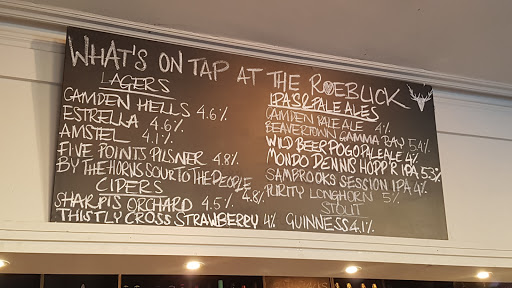 WHAT'S ON TAP AT THE ROEBUCK
LAGERS
CAMDEN HELLS 4.6%
ESTRELLA 4.6%
AMSTEL 4.1%
FIVE POINTS PILSNER 4.8%
BY THE HORNS SOUR TO THE PEOPLE 4.8%
CIDERS
SHARP'S ORCHARD 4.5%
THISTLY CROSS STRAWBERRY 4%
IPAS & PALE ALES
CAMDEN PALE ALE 4%
BEAVERTOWN GAMMA RAY 5.4%
WILD BEER POGO PALE ALE 4%
MONDO DENNIS HOPP'R IPA 5.5%
SAMBROOKS SESSION IPA 4%
PURITY LONGHORN 5%
STOUT
GUINNESS 4.1%